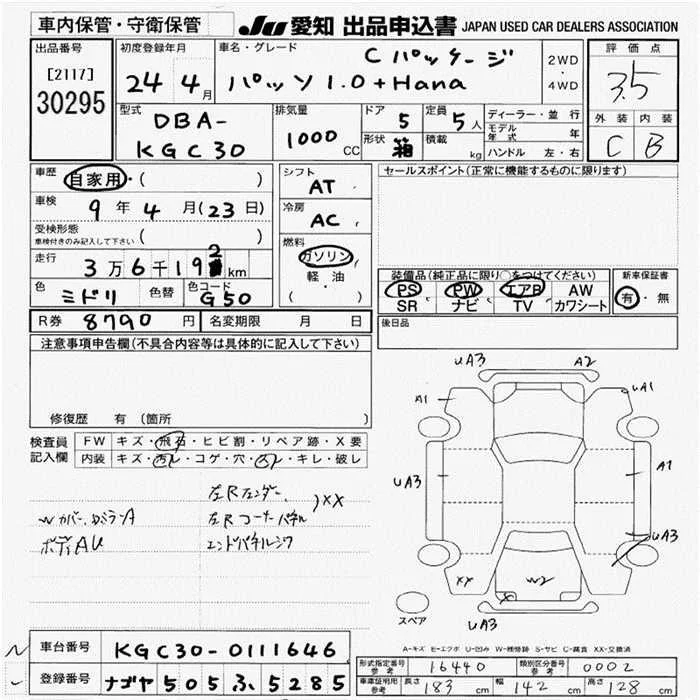 車内保管・守衛保管
JU 愛知 出品申込書 JAPAN USED CAR DEALERS ASSOCIATION
出品番号
[2117]
30295
初度登録年月
24 4月
車名・グレード
Cパッケージ
パッソ 1.0+Hana
2WD
・
4WD
評価点
3.5
外装 内装
C B
型式
DBA-
KGC30
排気量
1000 CC
ドア 5
形状 箱
定員 5人
積載 kg
ディーラー・並行
モデル年式 年
ハンドル 左・右
車歴 自家用・( )
車検 9年4月(23日)
受検形態
車検付きのみ記入して下さい ( )
走行 3万6千192km
色 ミドリ 色替 色コード G50
R券 8790円 名変期限 月 日
シフト
AT
冷房
AC
燃料
ガソリン
軽・油
( )
セールスポイント(正常に機能するものに限ります)
装備品(純正品に限り○をつけてください)
PS PW エアB AW
SR ナビ TV カワシート
新車保証書
有・無
後日品
注意事項申告欄(不具合内容等は具体的に記入して下さい)
修復歴 有(箇所
検査員記入欄
FW キズ・飛石・ヒビ割・リペア跡・X要
内装 キズ・汚レ・コゲ・穴・凸レ・キレ・破レ
左Rフェンダー、
左Rコーナーパネル
)XX
エンドパネルシワ
Wカバー、ドアミラーA
ボディAU
UA3 A2
A1 UA1
UA3 A1
UA3
XX W2
X
UA3
スペア
A-キズ E-エクボ U-凹み W-補修跡 S-サビ C-腐食 XX-交換済
車台番号 KGC30-0111646
登録番号 ナゴヤ505ふ5285
形式指定番号参考 16440 類別区分番号参考 0002
車庫証明用参考 長さ 183cm 幅 142cm 高さ 128cm